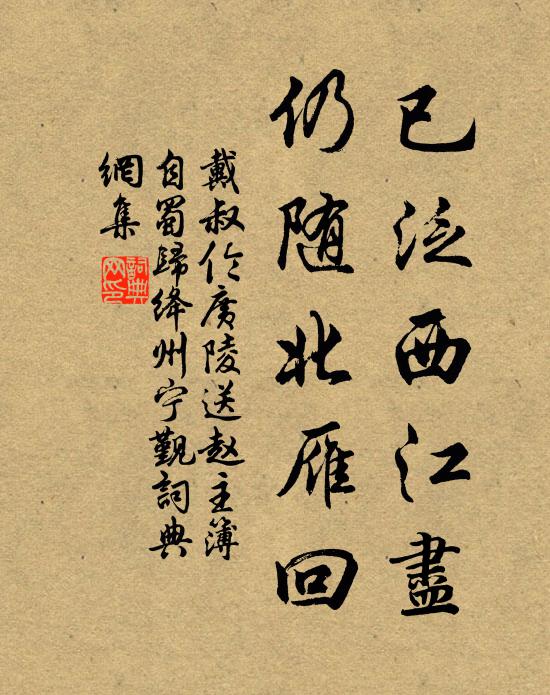 已泛西江盡
仍随北雁回
戴叔伦廣陵送赵主簿
自蜀歸绛州宁觐詞典
網集
詞典網印